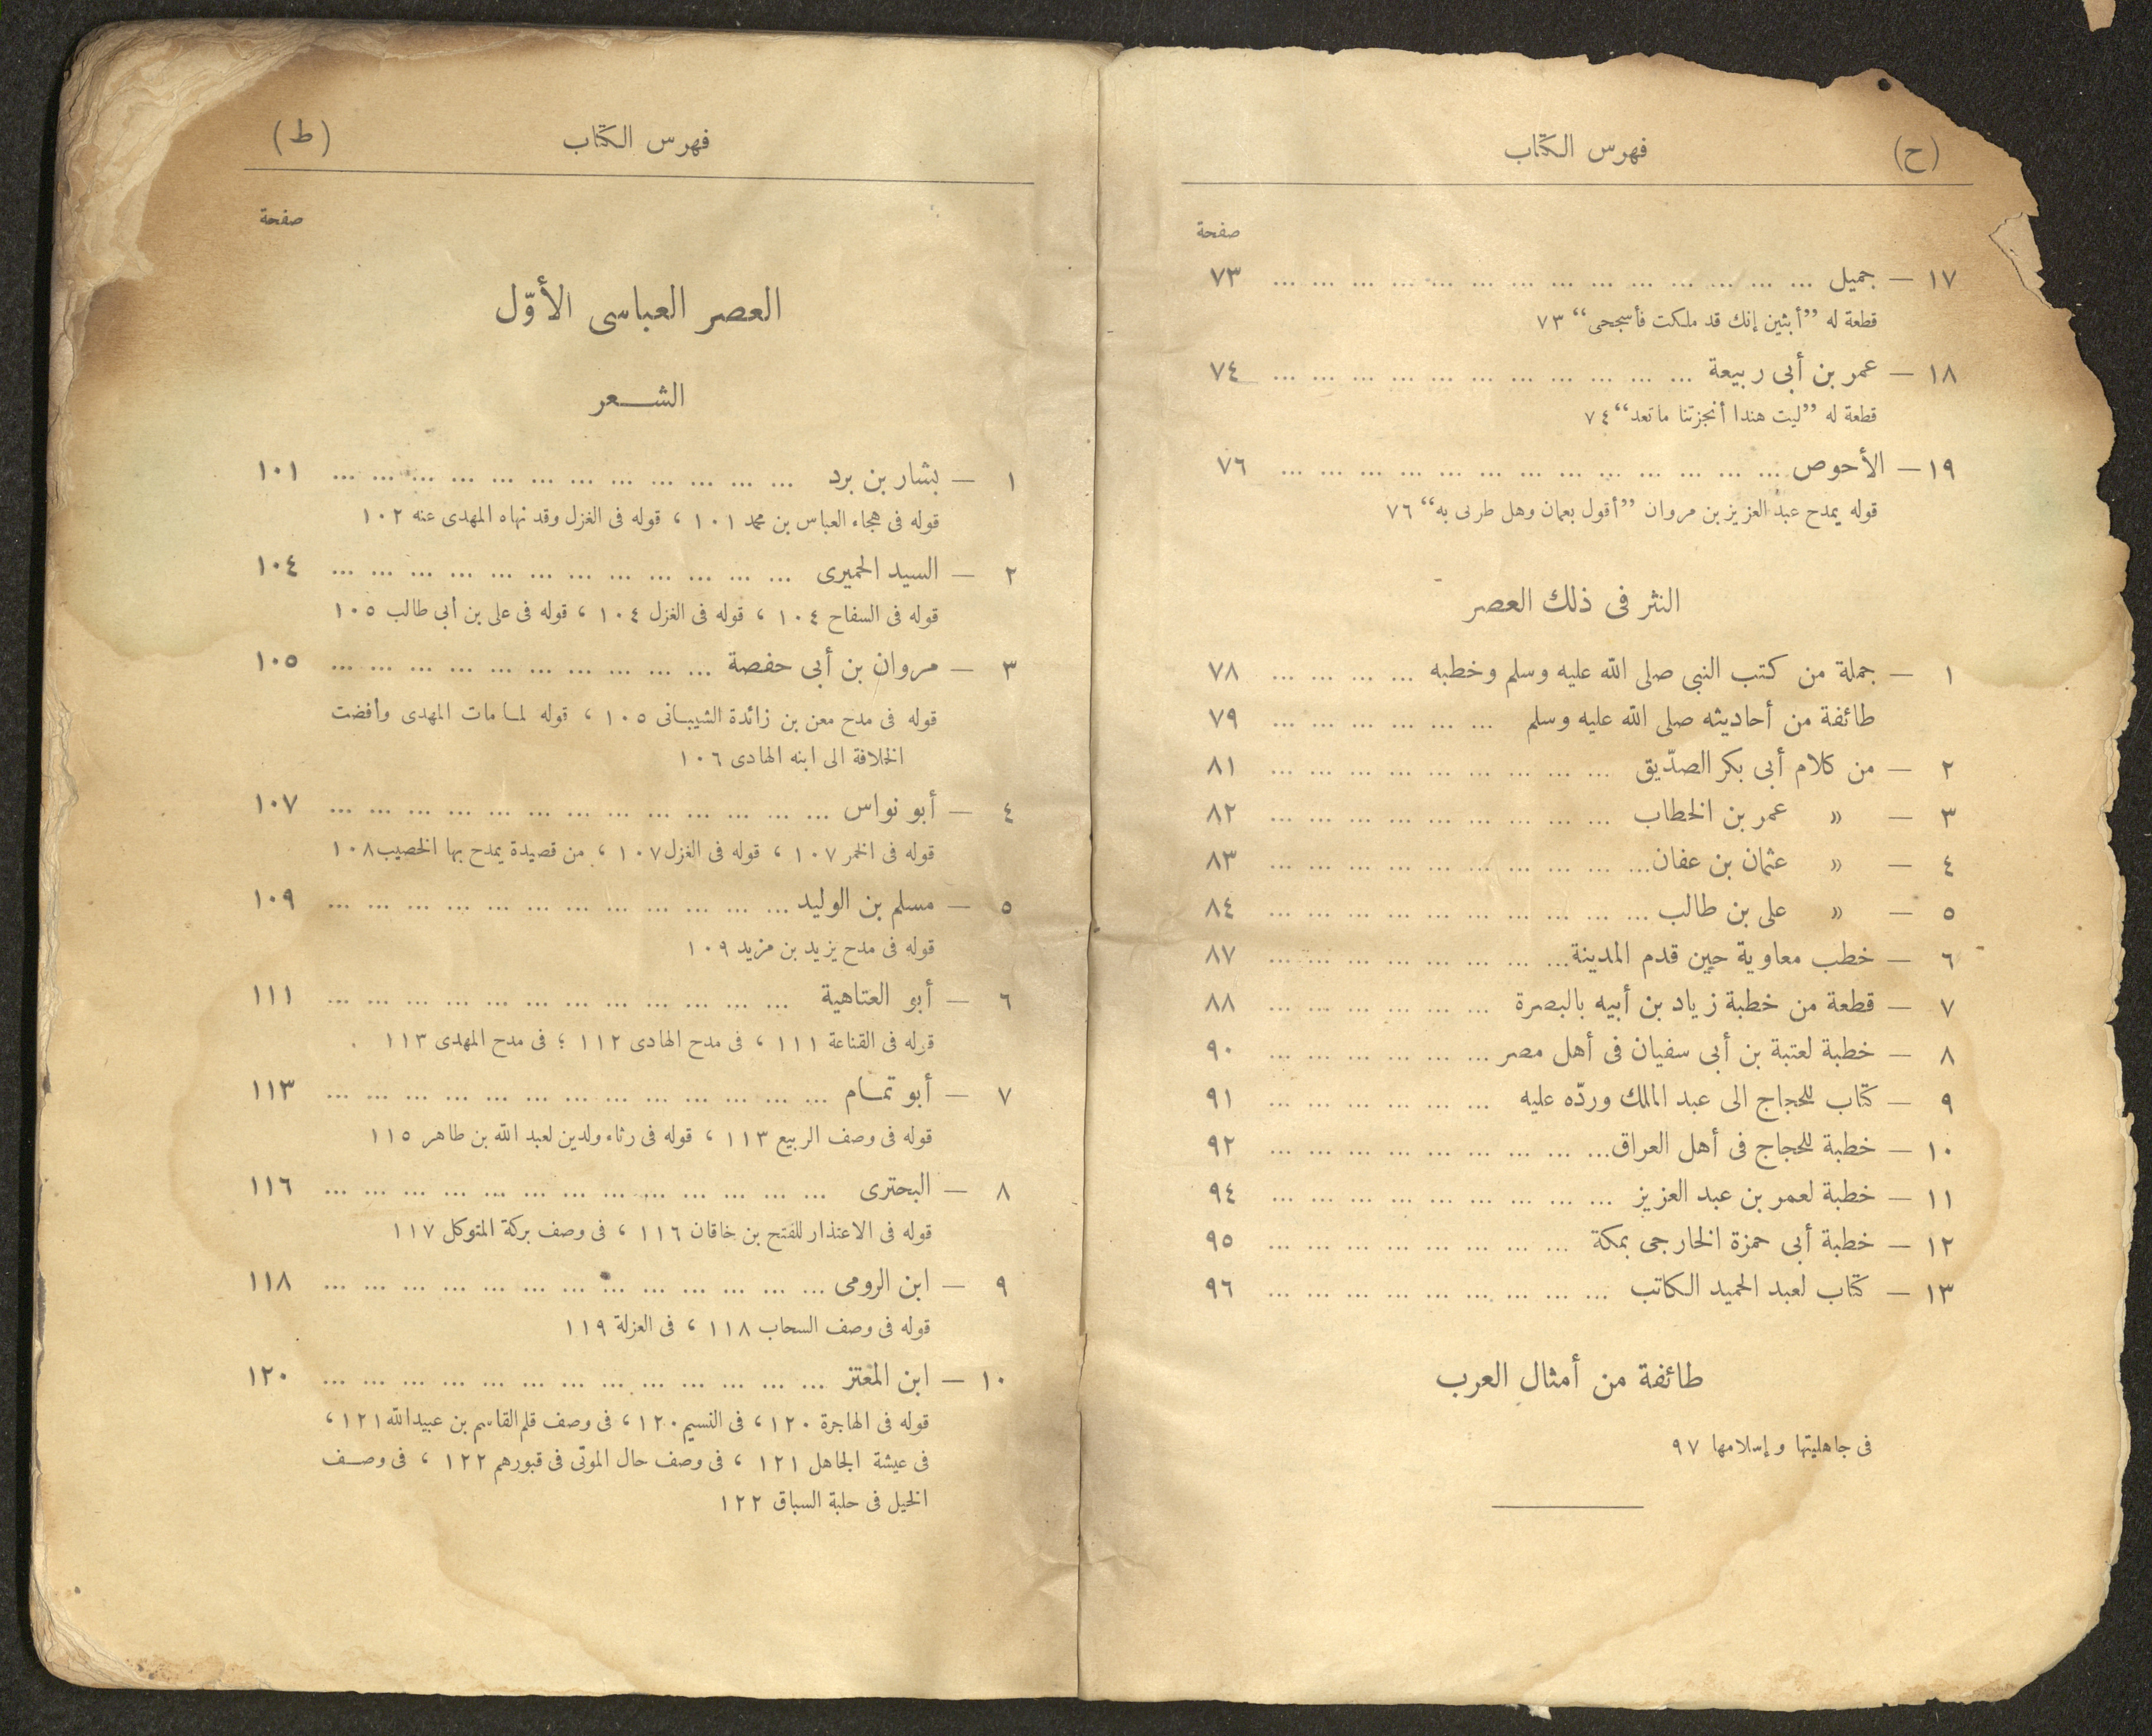 (ح) فهرس الكتاب
صفحة
١٧ — جميل ... ... ... ... ... ... ... ... ... ... ... ... ... ... ٧٣
قطعة له ”أبثين إنك قد ملكت فأسجحى“ ٧٣
١٨ — عمر بن أبى ربيعة ... ... ... ... ... ... ... ... ... ... ... ٧٤
قطعة له ”ليت هندا أنجزتنا ما تعد“ ٧٤
١٩ — الأحوص ... ... ... ... ... ... ... ... ... ... ... ... ... ٧٦
قوله يمدح عبد العزيز بن مروان ”أقول بعمان وهل طربى به“ ٧٦
النثر فى ذلك العصر
١ — جملة من كتب النبى صلى الله عليه وسلم وخطبه ... ... ... ... ٧٨
طائفة من أحاديثه صلى الله عليه وسلم ... ... ... ... ... ... ٧٩
٢ — من كلام أبى بكر الصدّيق ... ... ... ... ... ... ... ... ... ٨١
٣ — » عمر بن الخطاب ... ... ... ... ... ... ... ... ... ٨٢
٤ — » عثمان بن عفان ... ... ... ... ... ... ... ... ... ... ٨٣
٥ — » على بن طالب ... ... ... ... ... ... ... ... ... ... ٨٤
٦ — خطب معاوية حين قدم المدينة ... ... ... ... ... ... ... ... ٨٧
٧ — قطعة من خطبة زياد بن أبيه بالبصرة ... ... ... ... ... ... ٨٨
٨ — خطبة لعتبة بن أبى سفيان فى أهل مصر ... ... ... ... ... ... ٩٠
٩ — كتاب للحجاج الى عبد الملك وردّه عليه ... ... ... ... ... ... ٩١
١٠ — خطبة للحجاج فى أهل العراق ... ... ... ... ... ... ... ... ... ٩٢
١١ — خطبة لعمر بن عبد العزيز ... ... ... ... ... ... ... ... ... ٩٤
١٢ — خطبة أبى حمزة الخارجى بمكة ... ... ... ... ... ... ... ... ٩٥
١٣ — كتاب لعبد الحميد الكاتب ... ... ... ... ... ... ... ... ... ٩٦
طائفة من أمثال العرب
فى جاهليتها وإسلامها ٩٧
فهرس الكتاب (ط)
صفحة
العصر العباسى الأوّل
الشـــعر
١ — بشار بن برد ... ... ... ... ... ... ... ... ... ... ... ... ١٠١
قوله فى هجاء العباس بن محمد ١٠١ ، قوله فى الغزل وقد نهاه المهدى عنه ١٠٢
٢ — السيد الحميرى ... ... ... ... ... ... ... ... ... ... ... ... ١٠٤
قوله فى السفاح ١٠٤ ، قوله فى الغزل ١٠٤ ، قوله فى على بن أبى طالب ١٠٥
٣ — مروان بن أبى حفصة ... ... ... ... ... ... ... ... ... ... ١٠٥
قوله فى مدح معن بن زائدة الشيبانى ١٠٥ ، قوله لما مات المهدى وأفضت
الخلافة الى ابنه الهادى ١٠٦
٤ — أبو نواس ... ... ... ... ... ... ... ... ... ... ... ... ... ١٠٧
قوله فى الخمر ١٠٧ ، قوله فى الغزل ١٠٧ ، من قصيدة يمدح بها الخصيب ١٠٨
٥ — مسلم بن الوليد ... ... ... ... ... ... ... ... ... ... ... ... ١٠٩
قوله فى مدح يزيد بن مزيد ١٠٩
٦ — أبو العتاهية ... ... ... ... ... ... ... ... ... ... ... ... ١١١
قوله فى القناعة ١١١ ، فى مدح الهادى ١١٢ ؛ فى مدح المهدى ١١٣
٧ — أبو تمـام ... ... ... ... ... ... ... ... ... ... ... ... ... ١١٣
قوله فى وصف الربيع ١١٣ ، قوله فى رثاء ولدين لعبد الله بن طاهر ١١٥
٨ — البحترى ... ... ... ... ... ... ... ... ... ... ... ... ... ١١٦
قوله فى الاعتذار للفتح بن خاقان ١١٦ ، فى وصف بركة المتوكل ١١٧
٩ — ابن الرومى ... ... ... ... ... ... ... ... ... ... ... ... ... ١١٨
قوله فى وصف السحاب ١١٨ ، فى العزلة ١١٩
١٠ — ابن المعتز ... ... ... ... ... ... ... ... ... ... ... ... ... ١٢٠
قوله فى الهاجرة ١٢٠ ، فى النسيم ١٢٠ ، فى وصف قلم القاسم بن عبيد الله ١٢١ ،
فى عيشة الجاهل ١٢١ ، فى وصف حال الموتى فى قبورهم ١٢٢ ، فى وصــف
الخيل فى حلبة السباق ١٢٢